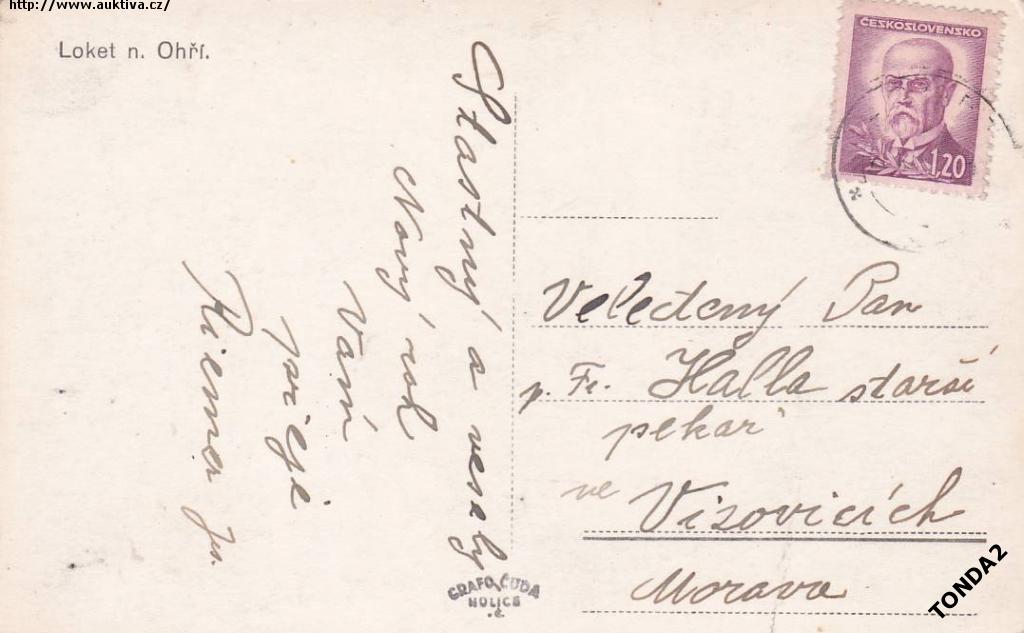 http://www.auktiva.cz/
Loket n. Ohří.
Štastný a veselý
Nový rok
Vám
přeje
Riemer Jos.
ČESKOSLOVENSKO
1,20
Veledtený Pan
p. Fr. Halla starší
pekař
ve Visovicích
Morava
GRAFO ČUDA
HOLICE
TONDA2